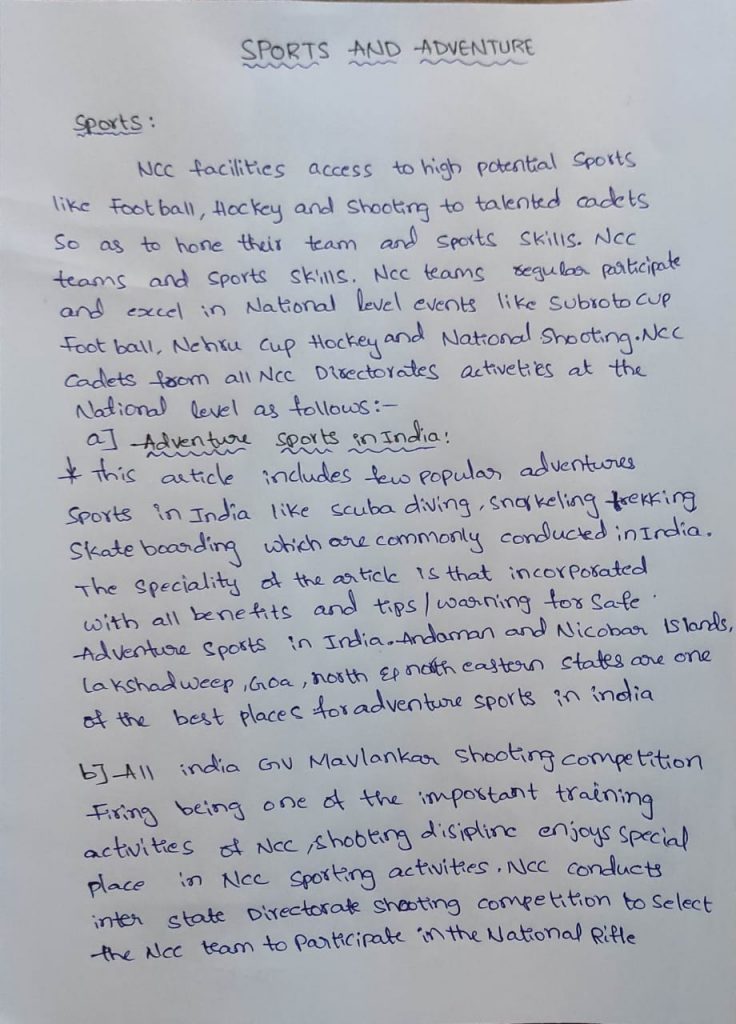 SPORTS AND ADVENTURE
Sports:
NCC facilities access to high potential Sports
like Football, Hockey and Shooting to talented cadets
So as to hone their team and sports skills. NCC
teams and sports skills. NCC teams regular participate
and excel in National level events like Subroto cup
Football, Nehru cup Hockey and National Shooting. NCC
Cadets from all NCC Directorates activeties at the
National level as follows:-
a] Adventure sports in India:
* This article includes few popular adventures
Sports in India like scuba diving, snorkeling trekking
Skate boarding which are commonly conducted in India.
The speciality of the article is that incorporated
with all benefits and tips/warning for safe
Adventure sports in India. Andaman and Nicobar Islands,
Lakshadweep, Goa, north & north eastern states are one
of the best places for adventure sports in india
b] All india GV Mavlankar Shooting competition
Firing being one of the important training
activities of NCC, shooting disipline enjoys special
place in NCC sporting activities. NCC conducts
inter state Directorate shooting competition to select
the NCC team to Participate in the National Rifle